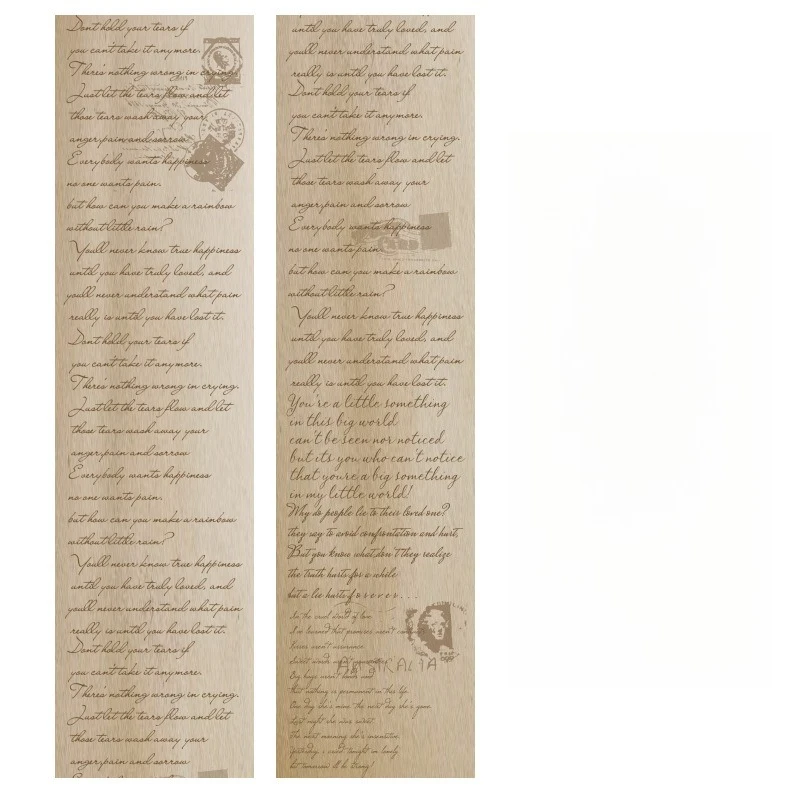 Dont hold your tears if
you can't take it anymore.
There's nothing wrong in crying.
Just let the tears flow and let
those tears wash away your
anger,pain and sorrow
Everybody wants happiness
no one wants pain.
but how can you make a rainbow
without little rain?
You'll never know true happiness
until you have truly loved, and
you'll never understand what pain
really is until you have lost it.
Dont hold your tears if
you can't take it anymore.
There's nothing wrong in crying.
Just let the tears flow and let
those tears wash away your
anger,pain and sorrow
Everybody wants happiness
no one wants pain.
but how can you make a rainbow
without little rain?
You'll never know true happiness
until you have truly loved, and
you'll never understand what pain
really is until you have lost it.
Dont hold your tears if
you can't take it anymore.
There's nothing wrong in crying.
Just let the tears flow and let
those tears wash away your
anger,pain and sorrow
until you have truly loved, and
you'll never understand what pain
really is until you have lost it.
Dont hold your tears if
you can't take it anymore.
There's nothing wrong in crying.
Just let the tears flow and let
those tears wash away your
anger,pain and sorrow
Everybody wants happiness
no one wants pain.
but how can you make a rainbow
without little rain?
You'll never know true happiness
until you have truly loved, and
you'll never understand what pain
really is until you have lost it.
You're a little something
in this big world
can't be seen nor noticed
but its you who can't notice
that you're a big something
in my little world!
Why do people lie to their loved one?
they say to avoid confrontation and hurt,
But you know what don't they realize
the truth hurts for a while
but a lie hurts forever...
In the cruel world of love
I've learned that promises aren't
Kisses aren't assurance
Sweet words aren't
AUSTRALIA
Big hugs aren't
that nothing is permanent in this life.
One day she's mine the next day she's gone
Last night she was sweet
the next morning she's insensitive.
Yesterday i cried tonight im lonely
but tomorrow ill be strong!